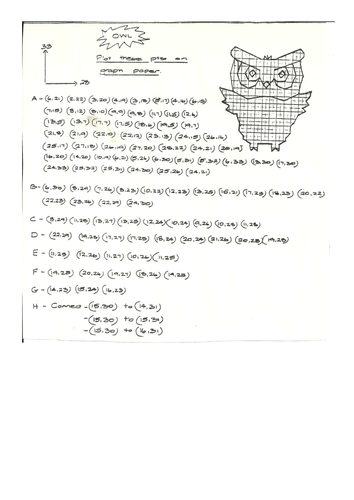 33
28
OWL
Plot these pts on
graph paper.
A - (6,21) (2,22) (3,20) (4,19) (3,18) (5,17) (4,16) (6,15)
(7,15) (8,12) (8,10) (9,9) (9,8) (11,7) (11,5) (12,6)
(13,5) (13,7) (17,7) (17,5) (18,6) (19,5) (19,7)
(21,8) (21,9) (22,10) (22,12) (23,15) (24,15) (26,16)
(25,17) (27,18) (26,19) (27,20) (28,22) (24,21)
(16,20) (14,20) (10,19) (6,21) (5,26) (6,30) (5,31) (5,33) (6,33) (13,30) (17,30)
(24,33) (25,33) (25,31) (24,30) (25,26) (24,21)
B - (6,30) (8,29) (7,26) (8,23) (10,22) (12,23) (13,25) (15,21) (17,25) (18,23) (20,22)
(22,23) (23,26) (22,29) (24,30)
C - (8,29) (11,28) (13,27) (13,25) (12,24) (10,24) (9,26) (10,28) (11,28)
D - (22,29) (19,28) (17,27) (17,25) (18,24) (20,24) (21,26) (20,28) (19,28)
E - (11,25) (12,26) (11,27) (10,26) (11,25)
F - (19,25) (20,26) (19,27) (18,26) (19,25)
G - (14,23) (15,24) (16,23)
H - Connect - (15,30) to (14,31)
- (15,30) to (15,31)
- (15,30) to (16,31)